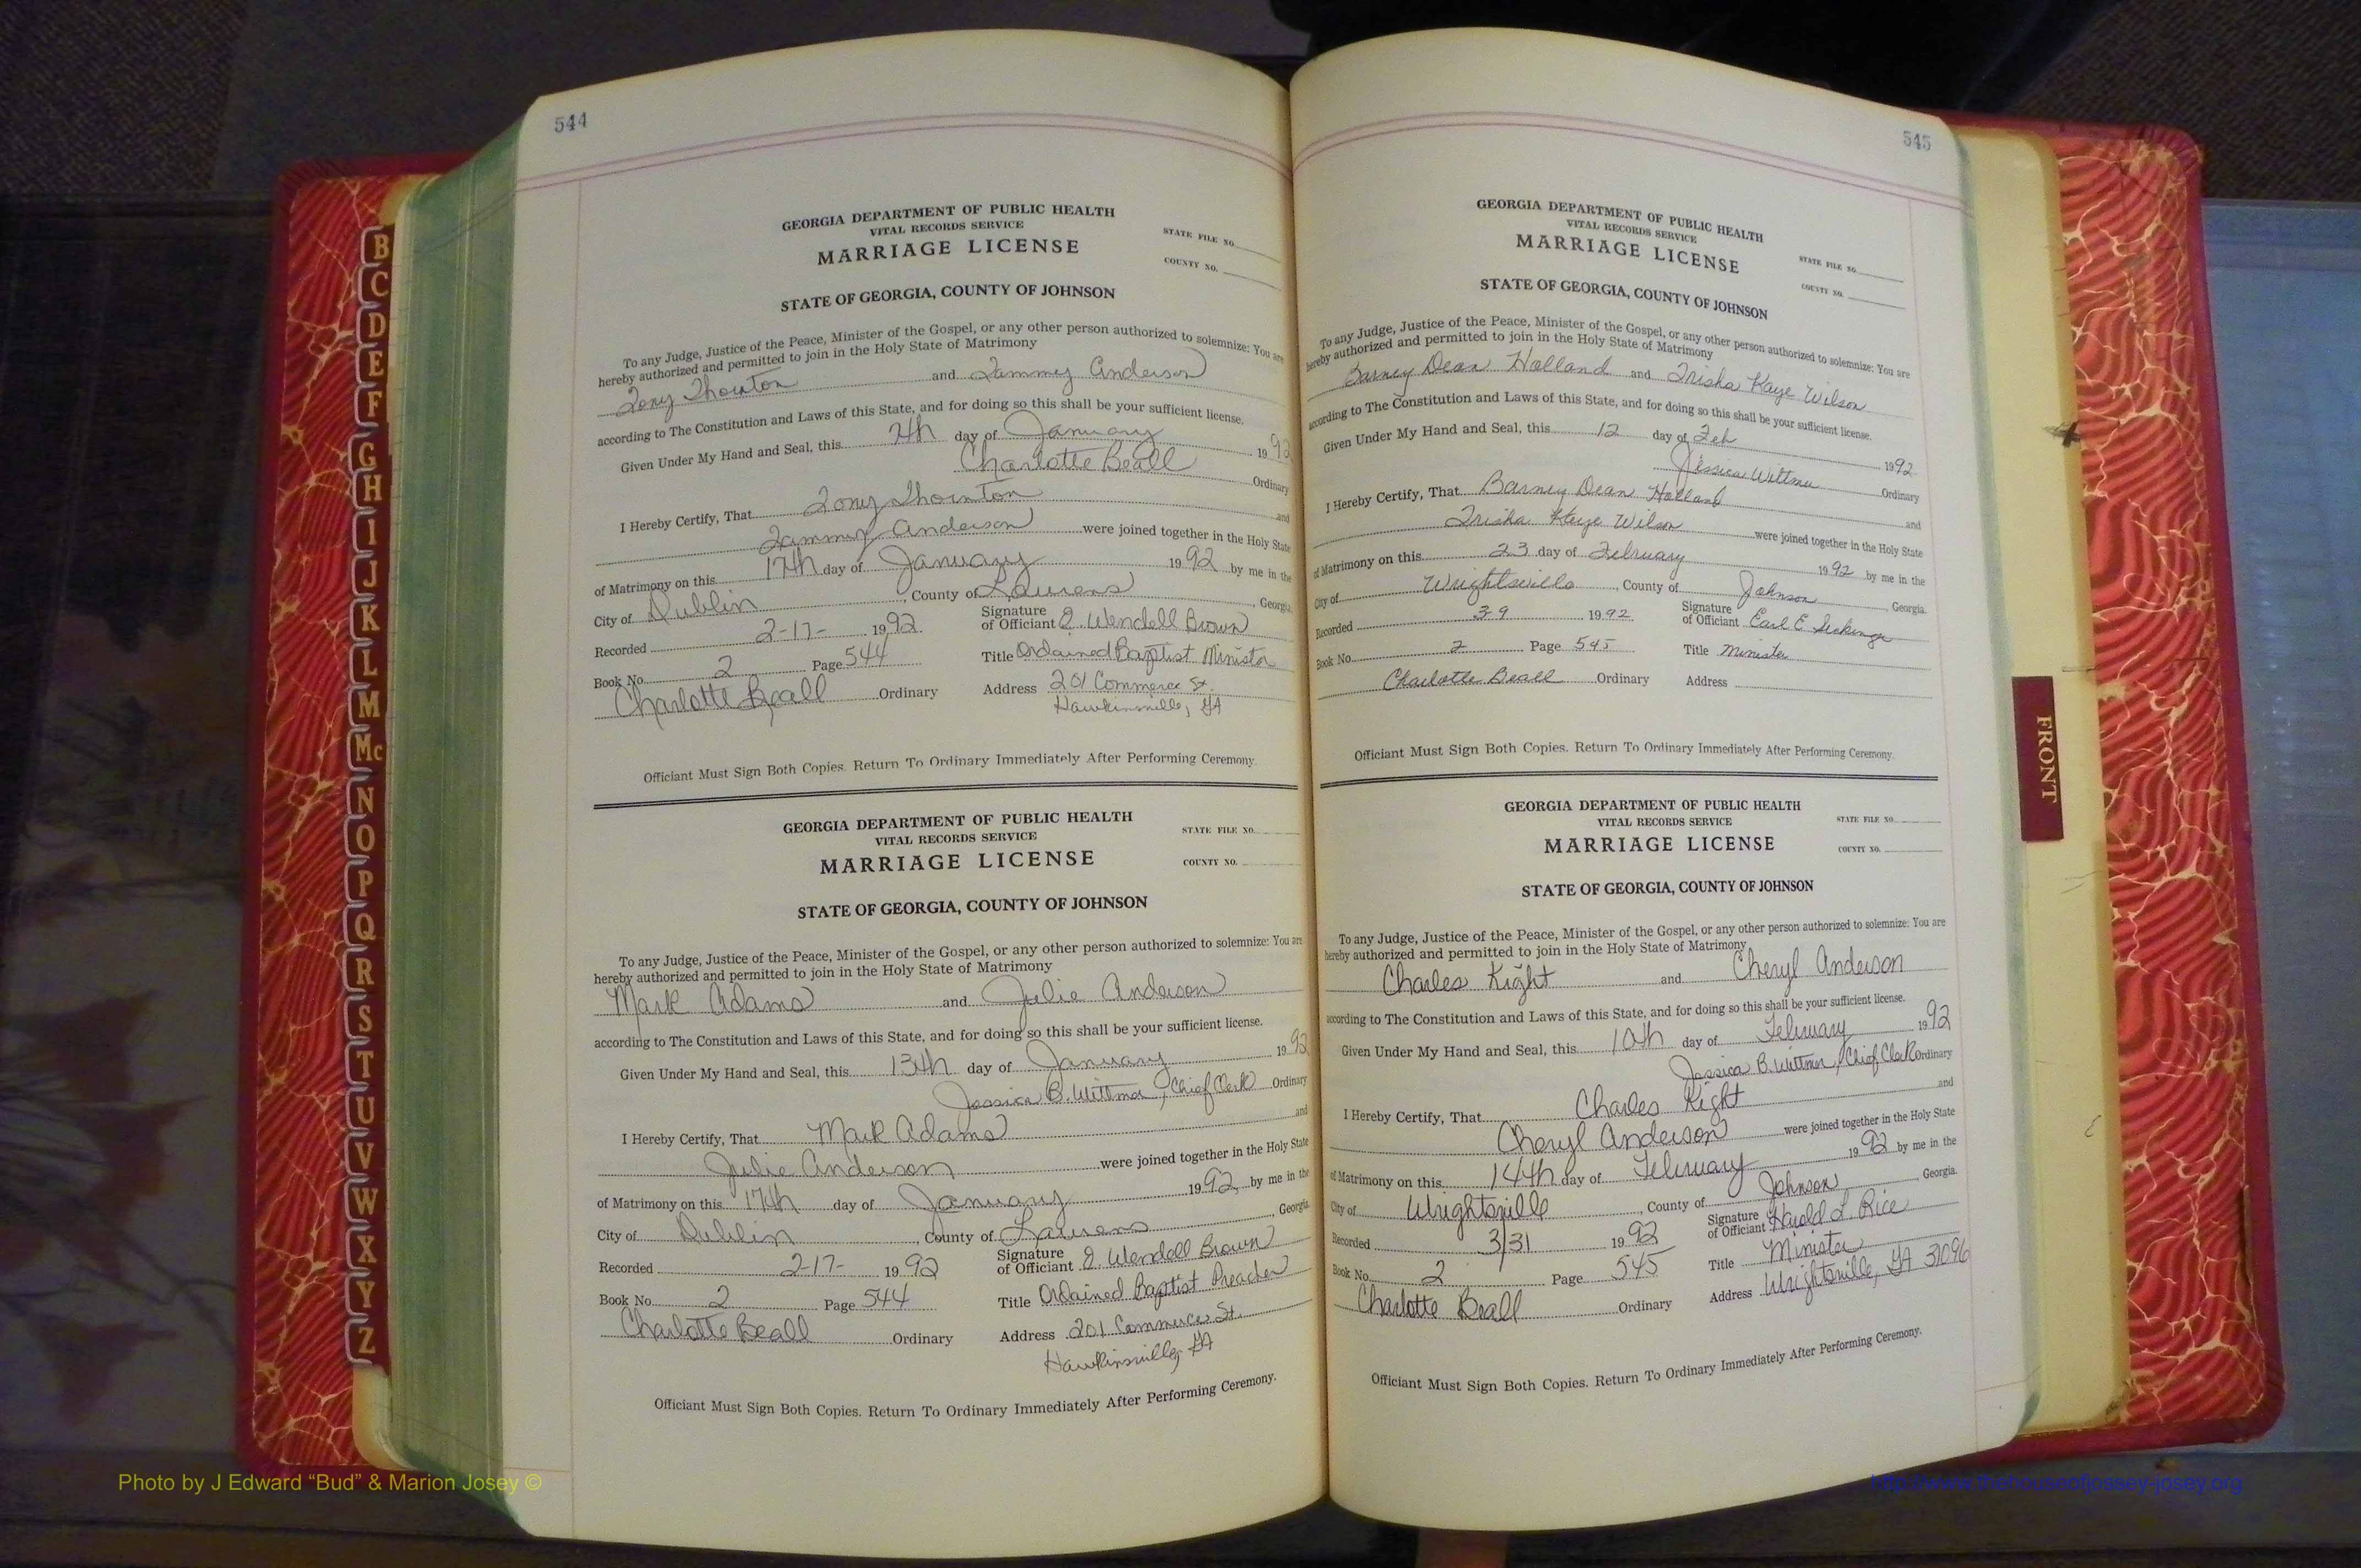 544
GEORGIA DEPARTMENT OF PUBLIC HEALTH
VITAL RECORDS SERVICE
MARRIAGE LICENSE
STATE FILE NO.
COUNTY NO.
STATE OF GEORGIA, COUNTY OF JOHNSON
To any Judge, Justice of the Peace, Minister of the Gospel, or any other person authorized to solemnize: You are
hereby authorized and permitted to join in the Holy State of Matrimony
Tony Thornton and Tammy Anderson
according to The Constitution and Laws of this State, and for doing so this shall be your sufficient license.
Given Under My Hand and Seal, this 7th day of January 1992
Charlotte Beall Ordinary
I Hereby Certify, That Tony Thornton and
Tammy Anderson were joined together in the Holy State
of Matrimony on this 17th day of January 1992 by me in the
City of Dublin, County of Laurens, Georgia.
Recorded 2-17- 1992
Signature of Officiant E. Wendell Brown
Book No. 2 Page 544
Title Ordained Baptist Minister
Charlotte Beall Ordinary
Address 201 Commerce St.
Hawkinsville, GA
Officiant Must Sign Both Copies. Return To Ordinary Immediately After Performing Ceremony.
GEORGIA DEPARTMENT OF PUBLIC HEALTH
VITAL RECORDS SERVICE
MARRIAGE LICENSE
STATE FILE NO.
COUNTY NO.
STATE OF GEORGIA, COUNTY OF JOHNSON
To any Judge, Justice of the Peace, Minister of the Gospel, or any other person authorized to solemnize: You are
hereby authorized and permitted to join in the Holy State of Matrimony
Mark Adams and Julie Anderson
according to The Constitution and Laws of this State, and for doing so this shall be your sufficient license.
Given Under My Hand and Seal, this 13th day of January 1992
Jessica B. Wittmer, Chief Clerk Ordinary
I Hereby Certify, That Mark Adams and
Julie Anderson were joined together in the Holy State
of Matrimony on this 17th day of January 1992 by me in the
City of Dublin, County of Laurens, Georgia
Recorded 2-17- 1992
Signature of Officiant E. Wendell Brown
Book No. 2 Page 544
Title Ordained Baptist Preacher
Charlotte Beall Ordinary
Address 201 Commerce St.
Hawkinsville, GA
Officiant Must Sign Both Copies. Return To Ordinary Immediately After Performing Ceremony.
545
GEORGIA DEPARTMENT OF PUBLIC HEALTH
VITAL RECORDS SERVICE
MARRIAGE LICENSE
STATE FILE NO.
COUNTY NO.
STATE OF GEORGIA, COUNTY OF JOHNSON
To any Judge, Justice of the Peace, Minister of the Gospel, or any other person authorized to solemnize: You are
hereby authorized and permitted to join in the Holy State of Matrimony
Barney Dean Holland and Trisha Kaye Wilson
according to The Constitution and Laws of this State, and for doing so this shall be your sufficient license.
Given Under My Hand and Seal, this 12 day of Feb 1992
Jessica Wittmer Ordinary
I Hereby Certify, That Barney Dean Holland and
Trisha Kaye Wilson were joined together in the Holy State
of Matrimony on this 23 day of February 1992 by me in the
City of Wrightsville, County of Johnson, Georgia.
Recorded 3-9 1992
Signature of Officiant Earl E
Book No. 2 Page 545
Title Minister
Charlotte Beall Ordinary
Address
Officiant Must Sign Both Copies. Return To Ordinary Immediately After Performing Ceremony.
GEORGIA DEPARTMENT OF PUBLIC HEALTH
VITAL RECORDS SERVICE
MARRIAGE LICENSE
STATE FILE NO.
COUNTY NO.
STATE OF GEORGIA, COUNTY OF JOHNSON
To any Judge, Justice of the Peace, Minister of the Gospel, or any other person authorized to solemnize: You are
hereby authorized and permitted to join in the Holy State of Matrimony
Charles Kight and Cheryl Anderson
according to The Constitution and Laws of this State, and for doing so this shall be your sufficient license.
Given Under My Hand and Seal, this 10th day of February 1992
Jessica B. Wittmer, Chief Clerk Ordinary
I Hereby Certify, That Charles Kight and
Cheryl Anderson were joined together in the Holy State
of Matrimony on this 14th day of February 1992 by me in the
City of Wrightsville, County of Johnson, Georgia.
Recorded 3/31 1992
Signature of Officiant Harold L. Rice
Book No. 2 Page 545
Title Minister
Charlotte Beall Ordinary
Address Wrightsville, GA 31096
Officiant Must Sign Both Copies. Return To Ordinary Immediately After Performing Ceremony.
B
C
D
E
F
G
H
I
J
K
L
M
Mc
N
O
P
Q
R
S
T
U
V
W
X
Y
Z
FRONT
Photo by J Edward “Bud” & Marion Josey ©
http://www.thehouseofjossey-josey.org